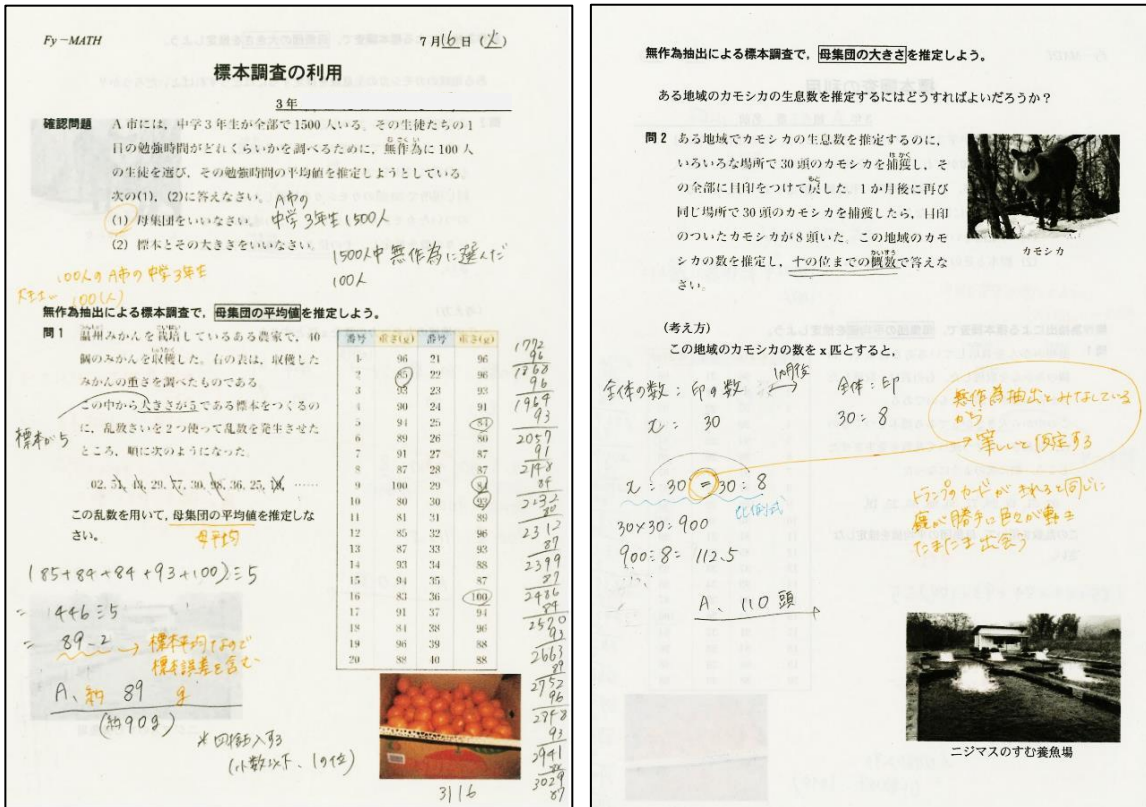 Fy－MATH
7月16日（火）
標本調査の利用
3年
確認問題　A市には，中学3年生が全部で1500人いる。その生徒たちの1
日の勉強時間がどれくらいかを調べるために，無作為に100人
の生徒を選び，その勉強時間の平均値を推定しようとしている。
次の(1)，(2)に答えなさい。
A市の
(1) 母集団をいいなさい。 中学3年生1500人
(2) 標本とその大きさをいいなさい。
1500人中無作為に選んだ
100人
100人のA市の中学3年生
大きさ… 100(人)
無作為抽出による標本調査で，母集団の平均値を推定しよう。
問1　温州みかんを栽培しているある農家で，40
個のみかんを収穫した。右の表は，収穫した
みかんの重さを調べたものである。
この中から大きさが5である標本をつくるの
に，乱数さいを2つ使って乱数を発生させた
ところ，順に次のようになった。
標本が5
02, 51, 13, 29, 77, 30, 98, 36, 25, ……
この乱数を用いて，母集団の平均値を推定しな
さい。
母平均
(85+84+84+93+100)÷5
= 446÷5
= 89.2
→ 標本平均なので
標本誤差を含む
A、約 89 g
(約90g)
※四捨五入する
(小数以下、1の位)
番号 重さ(g) 番号 重さ(g)
1 96 21 96
2 85 22 96
3 93 23 93
4 90 24 91
5 94 25 84
6 89 26 80
7 91 27 87
8 87 28 87
9 100 29 84
10 80 30 93
11 81 31 89
12 85 32 96
13 87 33 93
14 93 34 88
15 94 35 87
16 83 36 100
17 91 37 94
18 84 38 96
19 96 39 88
20 88 40 88
1772
96
1868
96
1964
93
2057
91
2148
84
2232
80
2312
87
2399
87
2486
84
2570
93
2663
89
2752
96
2848
93
2941
88
3029
87
3116
無作為抽出による標本調査で，母集団の大きさを推定しよう。
ある地域のカモシカの生息数を推定するにはどうすればよいだろうか？
問2　ある地域でカモシカの生息数を推定するのに，
いろいろな場所で30頭のカモシカを捕獲し，そ
の全部に目印をつけて戻した。1か月後に再び
同じ場所で30頭のカモシカを捕獲したら，目印
のついたカモシカが8頭いた。この地域のカモ
シカの数を推定し，十の位までの概数で答えな
さい。
カモシカ
（考え方）
この地域のカモシカの数をx匹とすると，
1か月後
全体の数：印の数 全体：印
x： 30 30：8
無作為抽出とみなしている
から
→ 等しいと仮定する
x：30＝30：8
比例式
30×30=900
900÷8=112.5
A、110頭
トランプのカードがきれると同じに
鹿が勝手に色々が動き
たまたま出会う
ニジマスのすむ養魚場